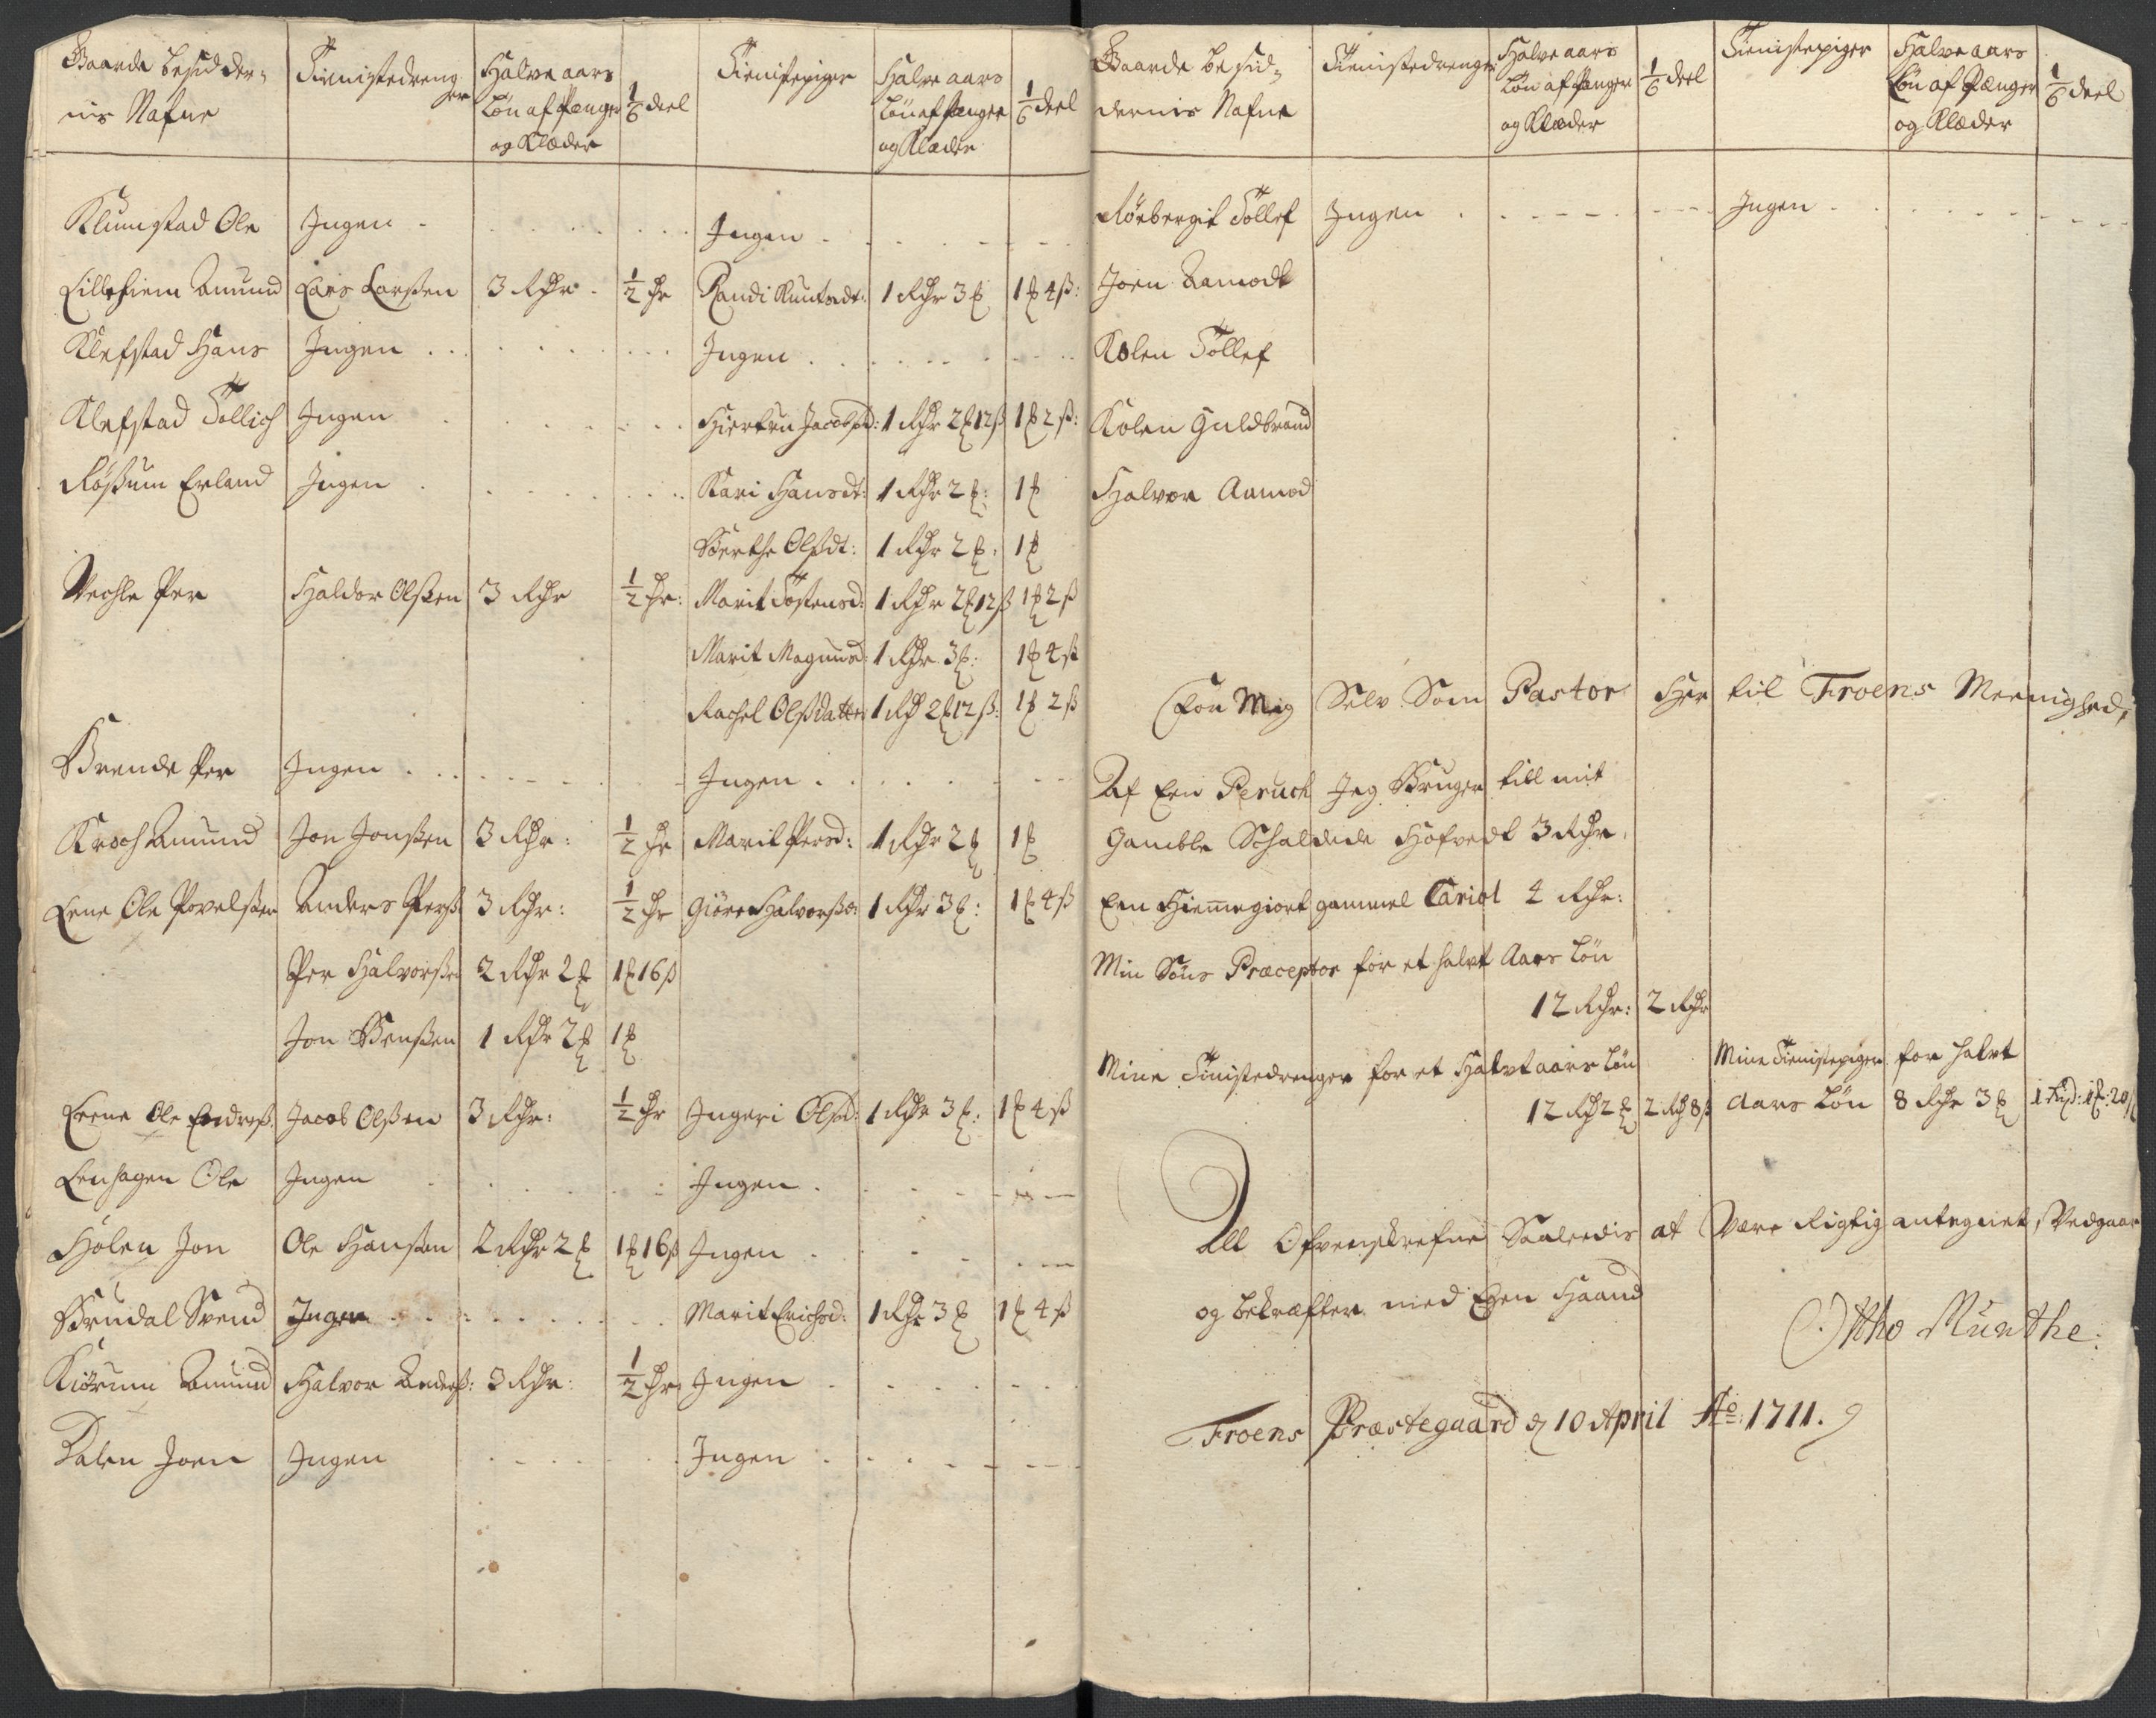 Gaarde besidder=
nis Nafne
Tienistedreng
er
Halve aars
Løn af Penger
og Klæder
1/6 deel
Tienistepiger
Halve aars
Løn af Penger
og Klæder
1/6 deel
Klumstad Ole Ingen Ingen
Lillehiem Amund Lars Larsen 3 Rdr 1/2 dr Randi Knutsdt: 1 Rdr 3 ℥ 1 ℥ 4 ß:
Klefstad Hans Ingen Ingen
Klefstad Tollich Ingen Jacobsd: 1 Rdr 2 ℥ 12 ß 1 ℥ 2 ß:
Røssum Erland Ingen Kari Hansdt: 1 Rdr 2 ℥: 1 ℥
Berthe Olsdt: 1 Rdr 2 ℥: 1 ℥
Vechle Per Haldor Olssen 3 Rdr 1/2 dr: Marit Tostensd: 1 Rdr 2 ℥ 12 ß 1 ℥ 2 ß
Marit Magnusd: 1 Rdr 3 ℥: 1 ℥ 4 ß
Rachel Olsdatter 1 Rd 2 ℥ 12 ß: 1 ℥ 2 ß
Brende Per Ingen Ingen
Kroch Amund Jon Jonssen 3 Rdr: 1/2 dr Marit Persd: 1 Rdr 2 ℥ 1 ℥
Lene Ole Povelssen Anders Perß 3 Rdr: 1/2 dr Giøre Halvorßd: 1 Rdr 3 ℥: 1 ℥ 4 ß
Per Halvorssen 2 Rdr 2 ℥ 1 ℥ 16 ß
Jon Benssen 1 Rdr 2 ℥ 1 ℥
Leene Ole Endreß: Jacob Olssen 3 Rdr: 1/2 dr Ingeri Olsd: 1 Rdr 3 ℥: 1 ℥ 4 ß
Lenhagen Ole Ingen Ingen
Holen Jon Ole Hanssen 2 Rdr 2 ℥ 1 ℥ 16 ß Ingen
Brudal Svend Ingen Marit Erichsd: 1 Rdr 3 ℥ 1 ℥ 4 ß
Kiørum Amund Halvor Anderß: 3 Rdr: 1/2 dr Ingen
Dalen Joen Ingen Ingen
Gaarde besid=
dernis Nafne
Tienistedrenger
Halve aars
Løn af Penger
og Klæder
1/6 deel
Tienistepiger
Halve aars
Løn af Penger
og Klæder
1/6 deel
Tollef Ingen Ingen
Joen Aamodt
Kolen Tollef
Kolen Guldbrand
Halvor Aamod
For Mig Selv Som Pastor Her til Froens Meenighed,
Af Een Peruch Jeg Bruger till mit
Gamble Schaldede Hofvedt 3 Rdr.
Een Hiemmegiort gammel Cariol 4 Rdr:
Min Søns Præceptor for et halvt Aars Løn
12 Rdr: 2 Rdr
Mine Tinistedrenger for et Halvt aars Løn
12 Rd 2 ℥ 2 Rd 8 ß
Mine Tienistepiger for halvt
Aars Løn 8 Rdr 3 ℥ 1 Rd: 1 ℥: 20 ß
All Ofvenskrefne Saaledis at Være Rigtig antegnet, Vedgaar
og bekræfter med Egen Haand
Ottho Munthe:
Froens Præstegaard d 10 April Ao: 1711.